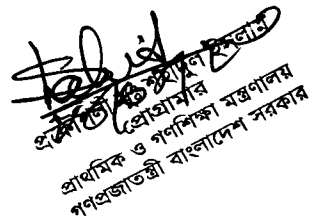 ইসলাম
প্রোগ্রামার
প্রাথমিক ও গণশিক্ষা মন্ত্রণালয়
গণপ্রজাতন্ত্রী বাংলাদেশ সরকার